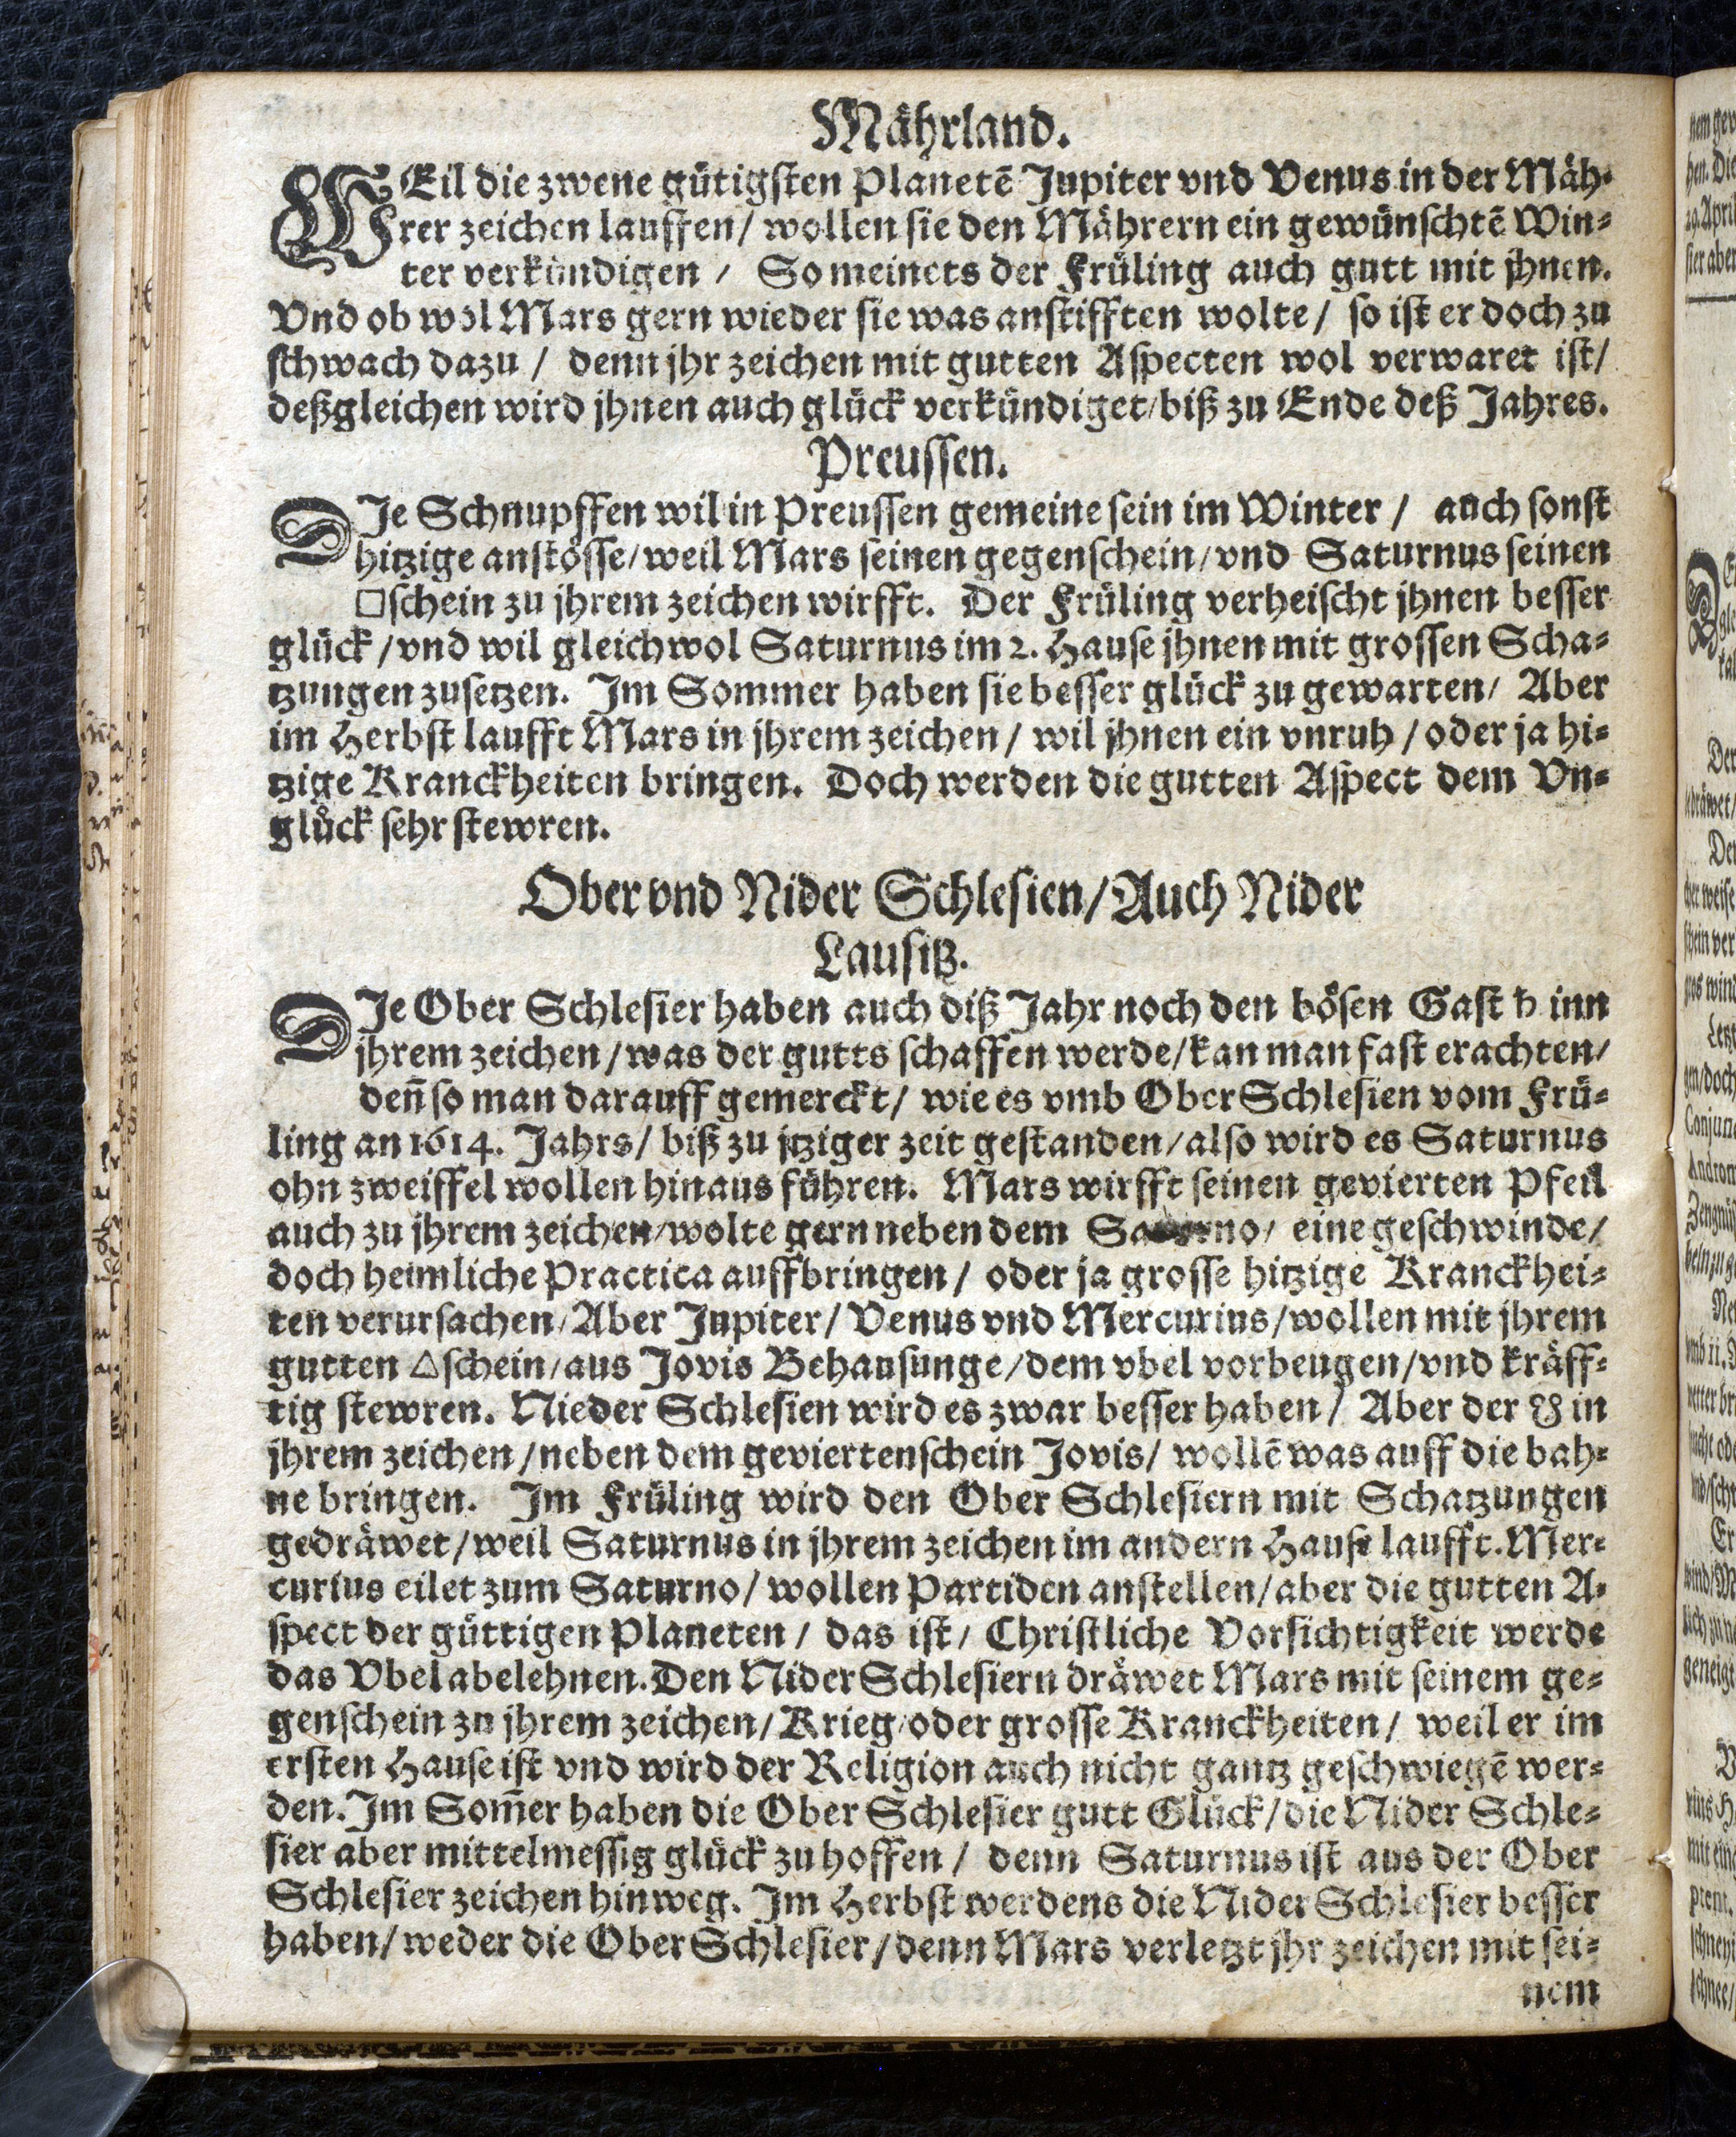 Mährland.
WEil die zwene gütigsten Planetē Jupiter vnd Venus in der Mäh-
rer zeichen lauffen/ wollen sie den Mährern ein gewünschtē Win-
ter verkündigen / So meinets der Früling auch gutt mit jhnen.
Vnd ob wol Mars gern wieder sie was anstifften wolte/ so ist er doch zu
schwach dazu / denn jhr zeichen mit gutten Aspecten wol verwaret ist/
deßgleichen wird jhnen auch glück verkündiget/biß zu Ende deß Jahres.
Preussen.
DJe Schnupffen wil in Preussen gemeine sein im Winter / auch sonst
hitzige anstösse/weil Mars seinen gegenschein/vnd Saturnus seinen
□schein zu jhrem zeichen wirfft. Der Früling verheischt jhnen besser
glück/vnd wil gleichwol Saturnus im 2. Hause jhnen mit grossen Scha-
tzungen zusetzen. Im Sommer haben sie besser glück zu gewarten/ Aber
im Herbst laufft Mars in jhrem zeichen/ wil jhnen ein vnruh / oder ja hi-
tzige Kranckheiten bringen. Doch werden die gutten Aspect dem Vn-
glück sehr stewren.
Ober vnd Nider Schlesien/Auch Nider
Lausitz.
DJe Ober Schlesier haben auch diß Jahr noch den bösen Gast ♄ inn
jhrem zeichen/was der gutts schaffen werde/kan man fast erachten/
deñ so man darauff gemerckt/ wie es vmb Ober Schlesien vom Frü-
ling an 1614. Jahrs/ biß zu jtziger zeit gestanden/also wird es Saturnus
ohn zweiffel wollen hinaus führen. Mars wirfft seinen gevierten Pfeil
auch zu jhrem zeichen/wolte gern neben dem Saturno/ eine geschwinde/
doch heimliche Practica auffbringen/ oder ja grosse hitzige Kranckhei-
ten verursachen/Aber Jupiter/ Venus vnd Mercurius/wollen mit jhrem
gutten △schein/aus Jovis Behausunge/dem vbel vorbeugen/vnd kräff-
tig stewren. Nieder Schlesien wird es zwar besser haben/ Aber der ☋ in
jhrem zeichen/neben dem geviertenschein Jovis/ wollē was auff die bah-
ne bringen. Im Früling wird den Ober Schlesiern mit Schatzungen
gedräwet/weil Saturnus in jhrem zeichen im andern Hause laufft. Mer-
curius eilet zum Saturno/ wollen Partiden anstellen/aber die gutten A-
spect der güttigen Planeten / das ist/ Christliche Vorsichtigkeit werde
das Vbel abelehnen. Den Nider Schlesiern dräwet Mars mit seinem ge-
genschein zu jhrem zeichen/ Krieg/oder grosse Kranckheiten/ weil er im
ersten Hause ist vnd wird der Religion auch nicht gantz geschwiegē wer-
den. Im Som̃er haben die Ober Schlesier gutt Glück/die Nider Schle-
sier aber mittelmessig glück zu hoffen / denn Saturnus ist aus der Ober
Schlesier zeichen hinweg. Im Herbst werdens die Nider Schlesier besser
haben/ weder die Ober Schlesier/denn Mars verletzt jhr zeichen mit sei-
nem